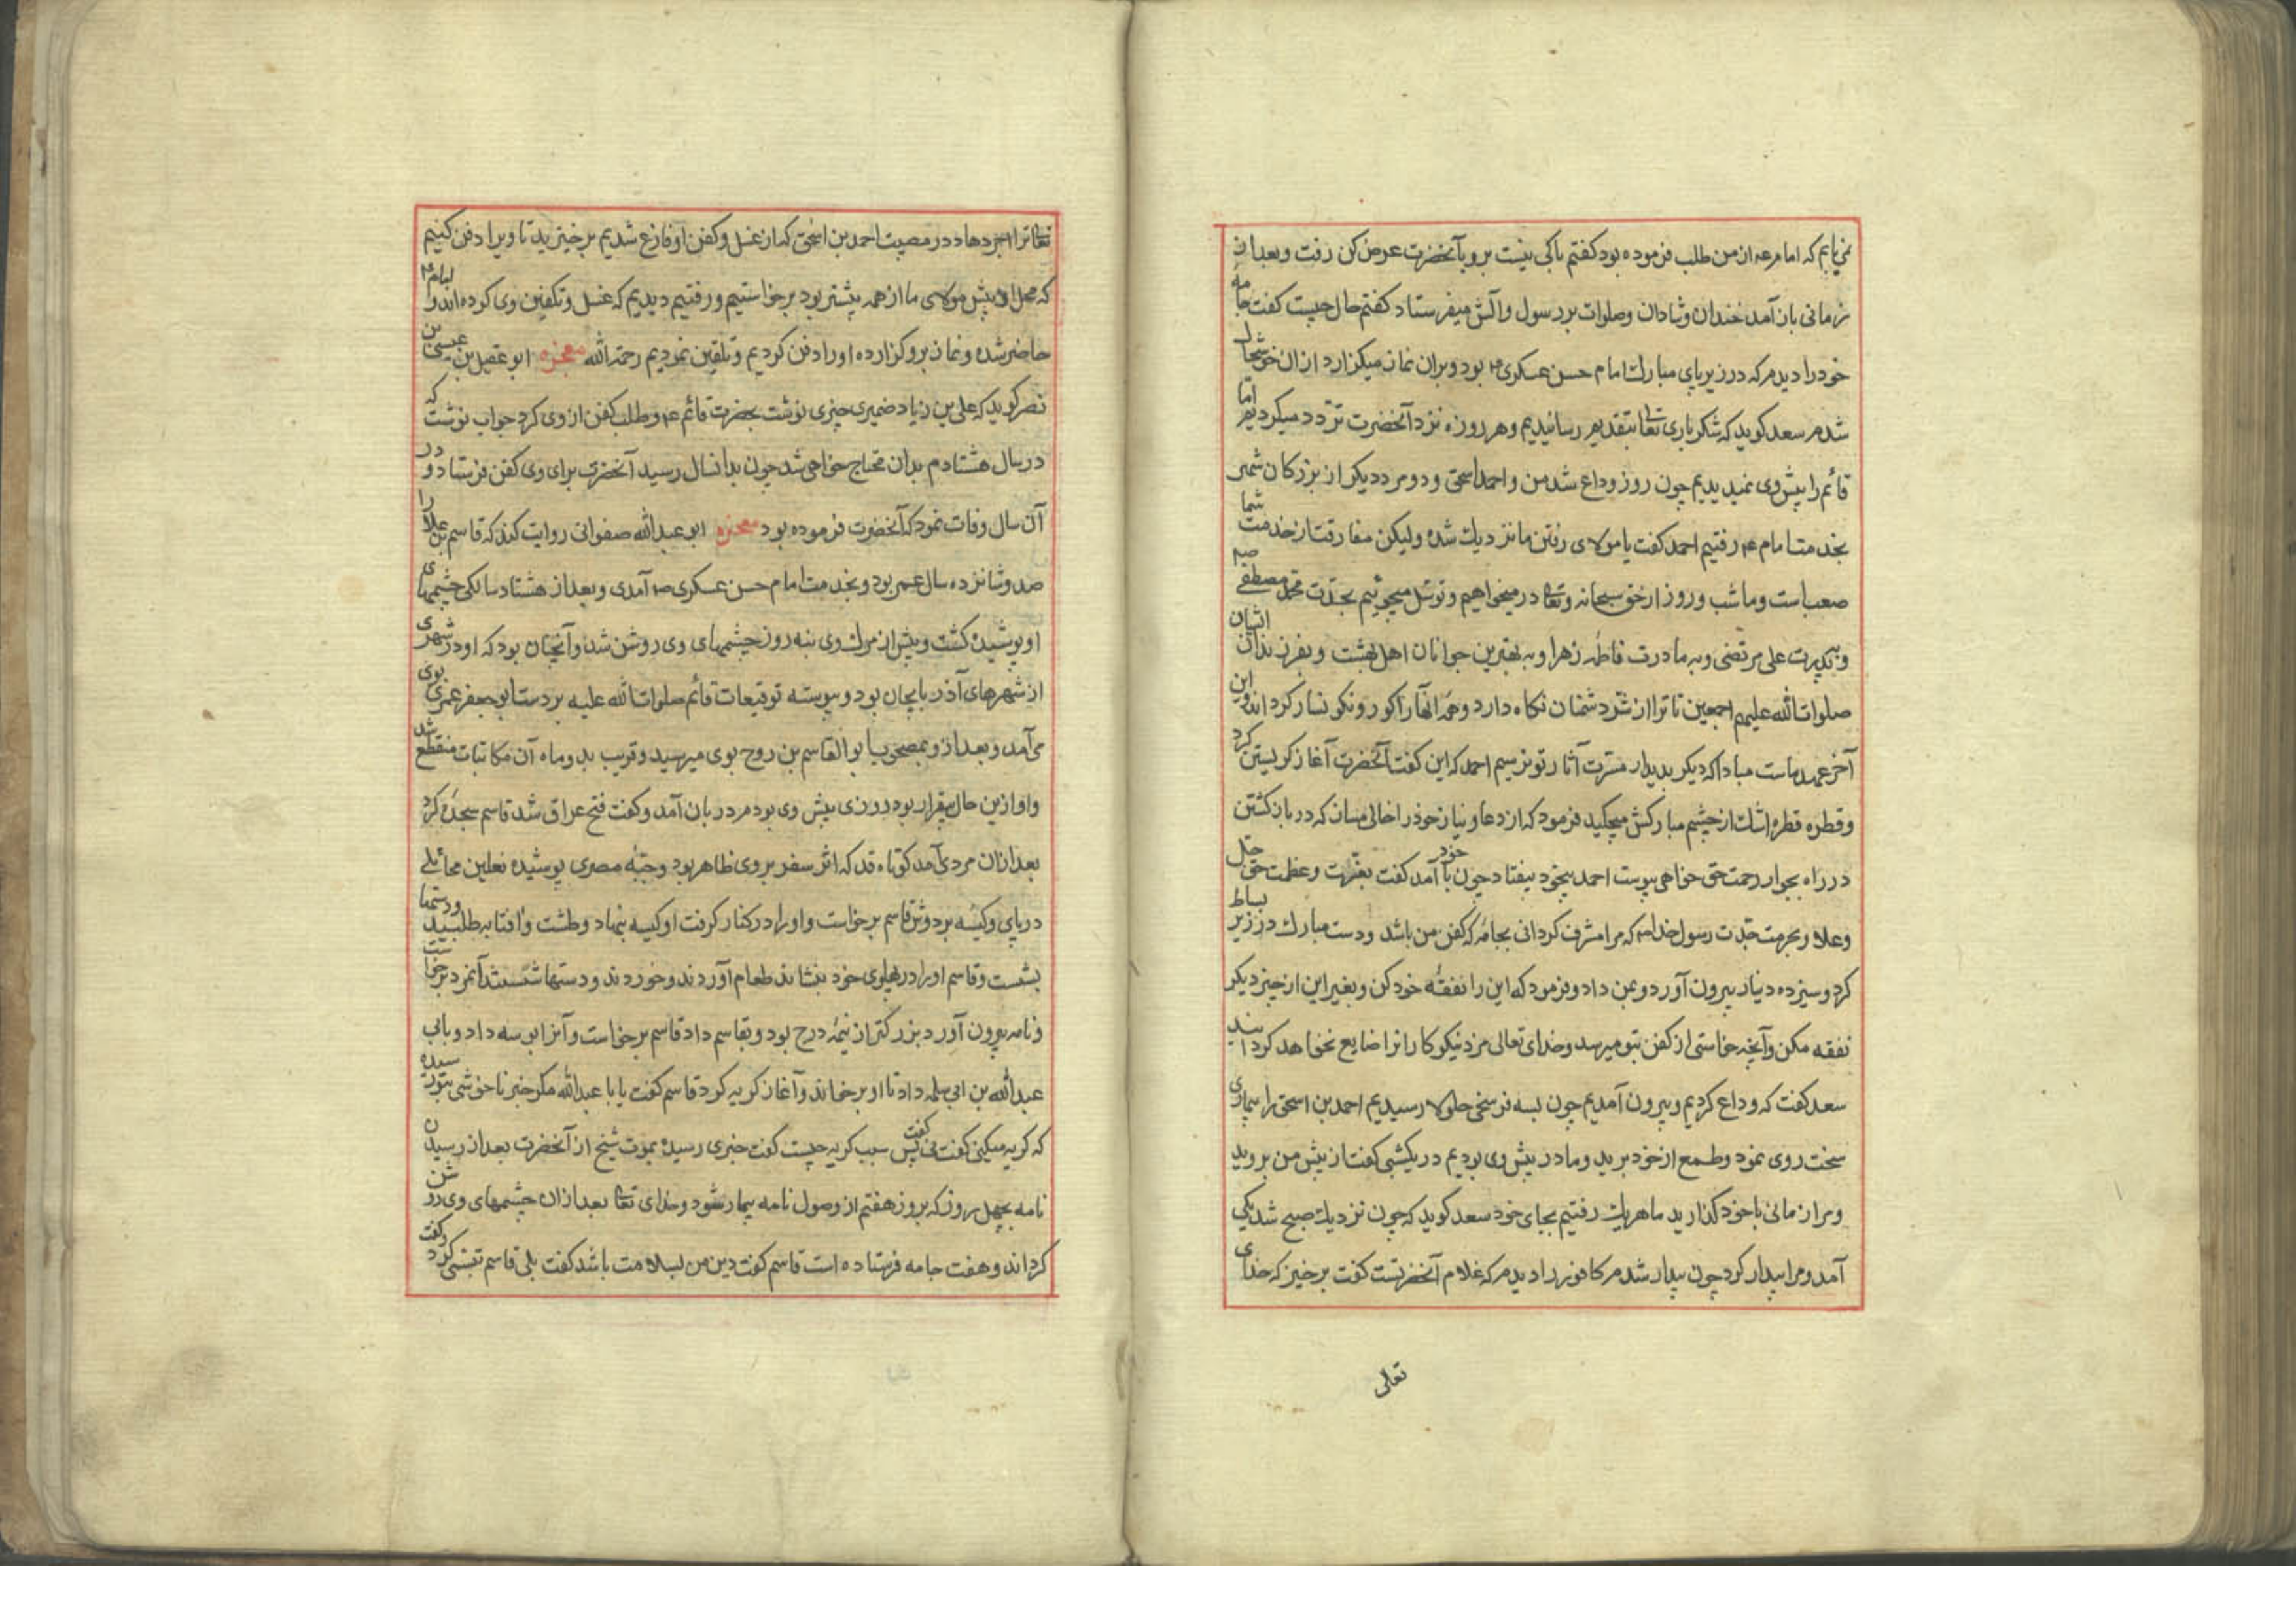 نمی‌یابم که امام ع از من طلب فرموده بود گفتم باکی نیست برو بآنحضرت عرض کن رفت و بعد از
زمانی باز آمد خندان و شادان و صلوات بر رسول و آلش میفرستاد گفتم حال چیست گفت جامه
خود را دیدم که در زیر پای مبارک امام حسن عسکری ع بود و بر آن نماز میگزارد از آن خوشحال
شدم سعد گوید که شکر باری تعالی بتقدیم رسانیدیم و هر روزه نزد آنحضرت تردد میکردیم اما
قائم را پیش وی نمیدیدیم چون روز وداع شد من و احمد اسحق و دو مرد دیگر از بزرگان شهر
بخدمت امام ع رفتیم احمد گفت یا مولای رفتن ما نزدیک شده ولیکن مفارقت از خدمت شما
صعب است و ما شب و روز از حق سبحانه و تعالی در میخواهیم و توسل میجوئیم بجدت محمد مصطفی ص
و بپدرت علی مرتضی و به مادرت فاطمه زهرا و به بهترین جوانان اهل بهشت و بفرزندان ایشان
صلوات الله علیهم اجمعین تا ترا از شر دشمنان نگاه دارد و همه آنها را کور و نگونسار گرداند و این
آخر عهد ماست مبادا که دیگر بدیدار مسرت آثار تو نرسیم احمد که این گفت آنحضرت آغاز گریستن کرد
و قطره قطره اشک از چشم مبارکش میچکید فرمود که از دعا و نیاز خود را خالی مسان که در باز گشتن
در راه بجوار رحمت حق خواهی پیوست احمد بیخود بیفتاد چون با خود آمد گفت بعزت و عظمت حق جل
و علا و بحرمت جدت رسول خدا ص که مرا مشرف گردانی بجامه که کفن من باشد و دست مبارک در زیر بساط
کرد و سیزده دینار بیرون آورد و بمن داد و فرمود که این را نفقه خود کن و بغیر این از چیز دیگر
نفقه مکن و آنچه خواستی از کفن بتو میرسد و خدای تعالی مزد نیکوکارانرا ضایع نخواهد کردانید
سعد گفت که وداع کردیم و بیرون آمدیم چون بسه فرسخی حلولا رسیدیم احمد بن اسحق را بیماری
سخت روی نمود و طمع از خود برید و ما در پیش وی بودیم در یکشبی گفت از پیش من بروید
و مرا زمانی با خود گذارید ما هر یک رفتیم بجای خود سعد گوید که چون نزدیک صبح شد یکی
آمد و مرا بیدار کرد چون بیدار شدم کافور را دیدم که غلام آنحضرتست گفت برخیز که خدای
تعالی
تعالی ترا اجر دهاد در مصیبت احمد بن اسحق که از غسل و کفن او فارغ شدیم برخیزید تا ویرا دفن کنیم
که محل او پیش مولای ما از همه پیشتر بود برخواستیم و رفتیم دیدیم که غسل و تکفین وی کرده‌اند و امام ع
حاضر شده و نماز برو گزارده او را دفن کردیم و تلقین نمودیم رحمة الله معجزه ابو عقیل بن عیسی بن
نصر گوید که علی بن زیاد ضمیری چیزی نوشت بحضرت قائم ع و طلب کفن از وی کرد جواب نوشت که
در سال هشتادم بدان محتاج خواهی شد چون بدانسال رسید آنحضرت برای وی کفن فرستاد و در
آن سال وفات نمود که آنحضرت فرموده بود معجزه ابو عبدالله صفوانی روایت کند که قاسم بن علا را
صد و شانزده سال عمر بود و بخدمت امام حسن عسکری ع آمدی و بعد از هشتاد سالگی چشمهای
او پوشیده گشت و پیش از مرک وی بنه روز چشمهای وی روشن شد و آنچنان بود که او در شهری
از شهرهای آذربایجان بود و پیوسته توقیعات قائم صلوات الله علیه بر دست ابو جعفر عمری بوی
می‌آمد و بعد از وی بصحبت ابو القاسم بن روح بوی میرسید و قریب بدو ماه آن مکاتبات منقطع شد
و او ازین حال بیقرار بود روزی پیش وی بودم دربان آمد و گفت فتح عراق شد قاسم سجده کرد
بعد از آن مردی آمد کوتاه قد که اثر سفر بر وی ظاهر بود و جبه مصری پوشیده نعلین محاملی
در پای و کیسه بر دوش قاسم برخواست و او را در کنار گرفت او کیسه بنهاد و طشت و افتابه طلبید و دستها
بشست و قاسم او را در پهلوی خود بنشاند طعام آوردند و خوردند و دستها شستند آنمرد برخواست
و نامه بیرون آورد بزرگتر از نیمه درج بود و بقاسم داد قاسم برخواست و آنرا بوسه داد و بابی
عبدالله بن ابی سلمه داد تا او برخواند و آغاز گریه کرد قاسم گفت یا با عبدالله مگر خبر ناخوشی بتو رسیده
که گریه میکنی گفت نی گفت پس سبب گریه چیست گفت خبری رسیده بموت شیخ از آنحضرت بعد از رسیدن
نامه بچهل روز که بروز هفتم از وصول نامه بیمار شود و خدای تعالی بعد از آن چشمهای وی روشن
گرداند و هفت جامه فرستاده است قاسم گفت دین من بسلامت باشد گفت بلی قاسم تبسمی کرد و گفت